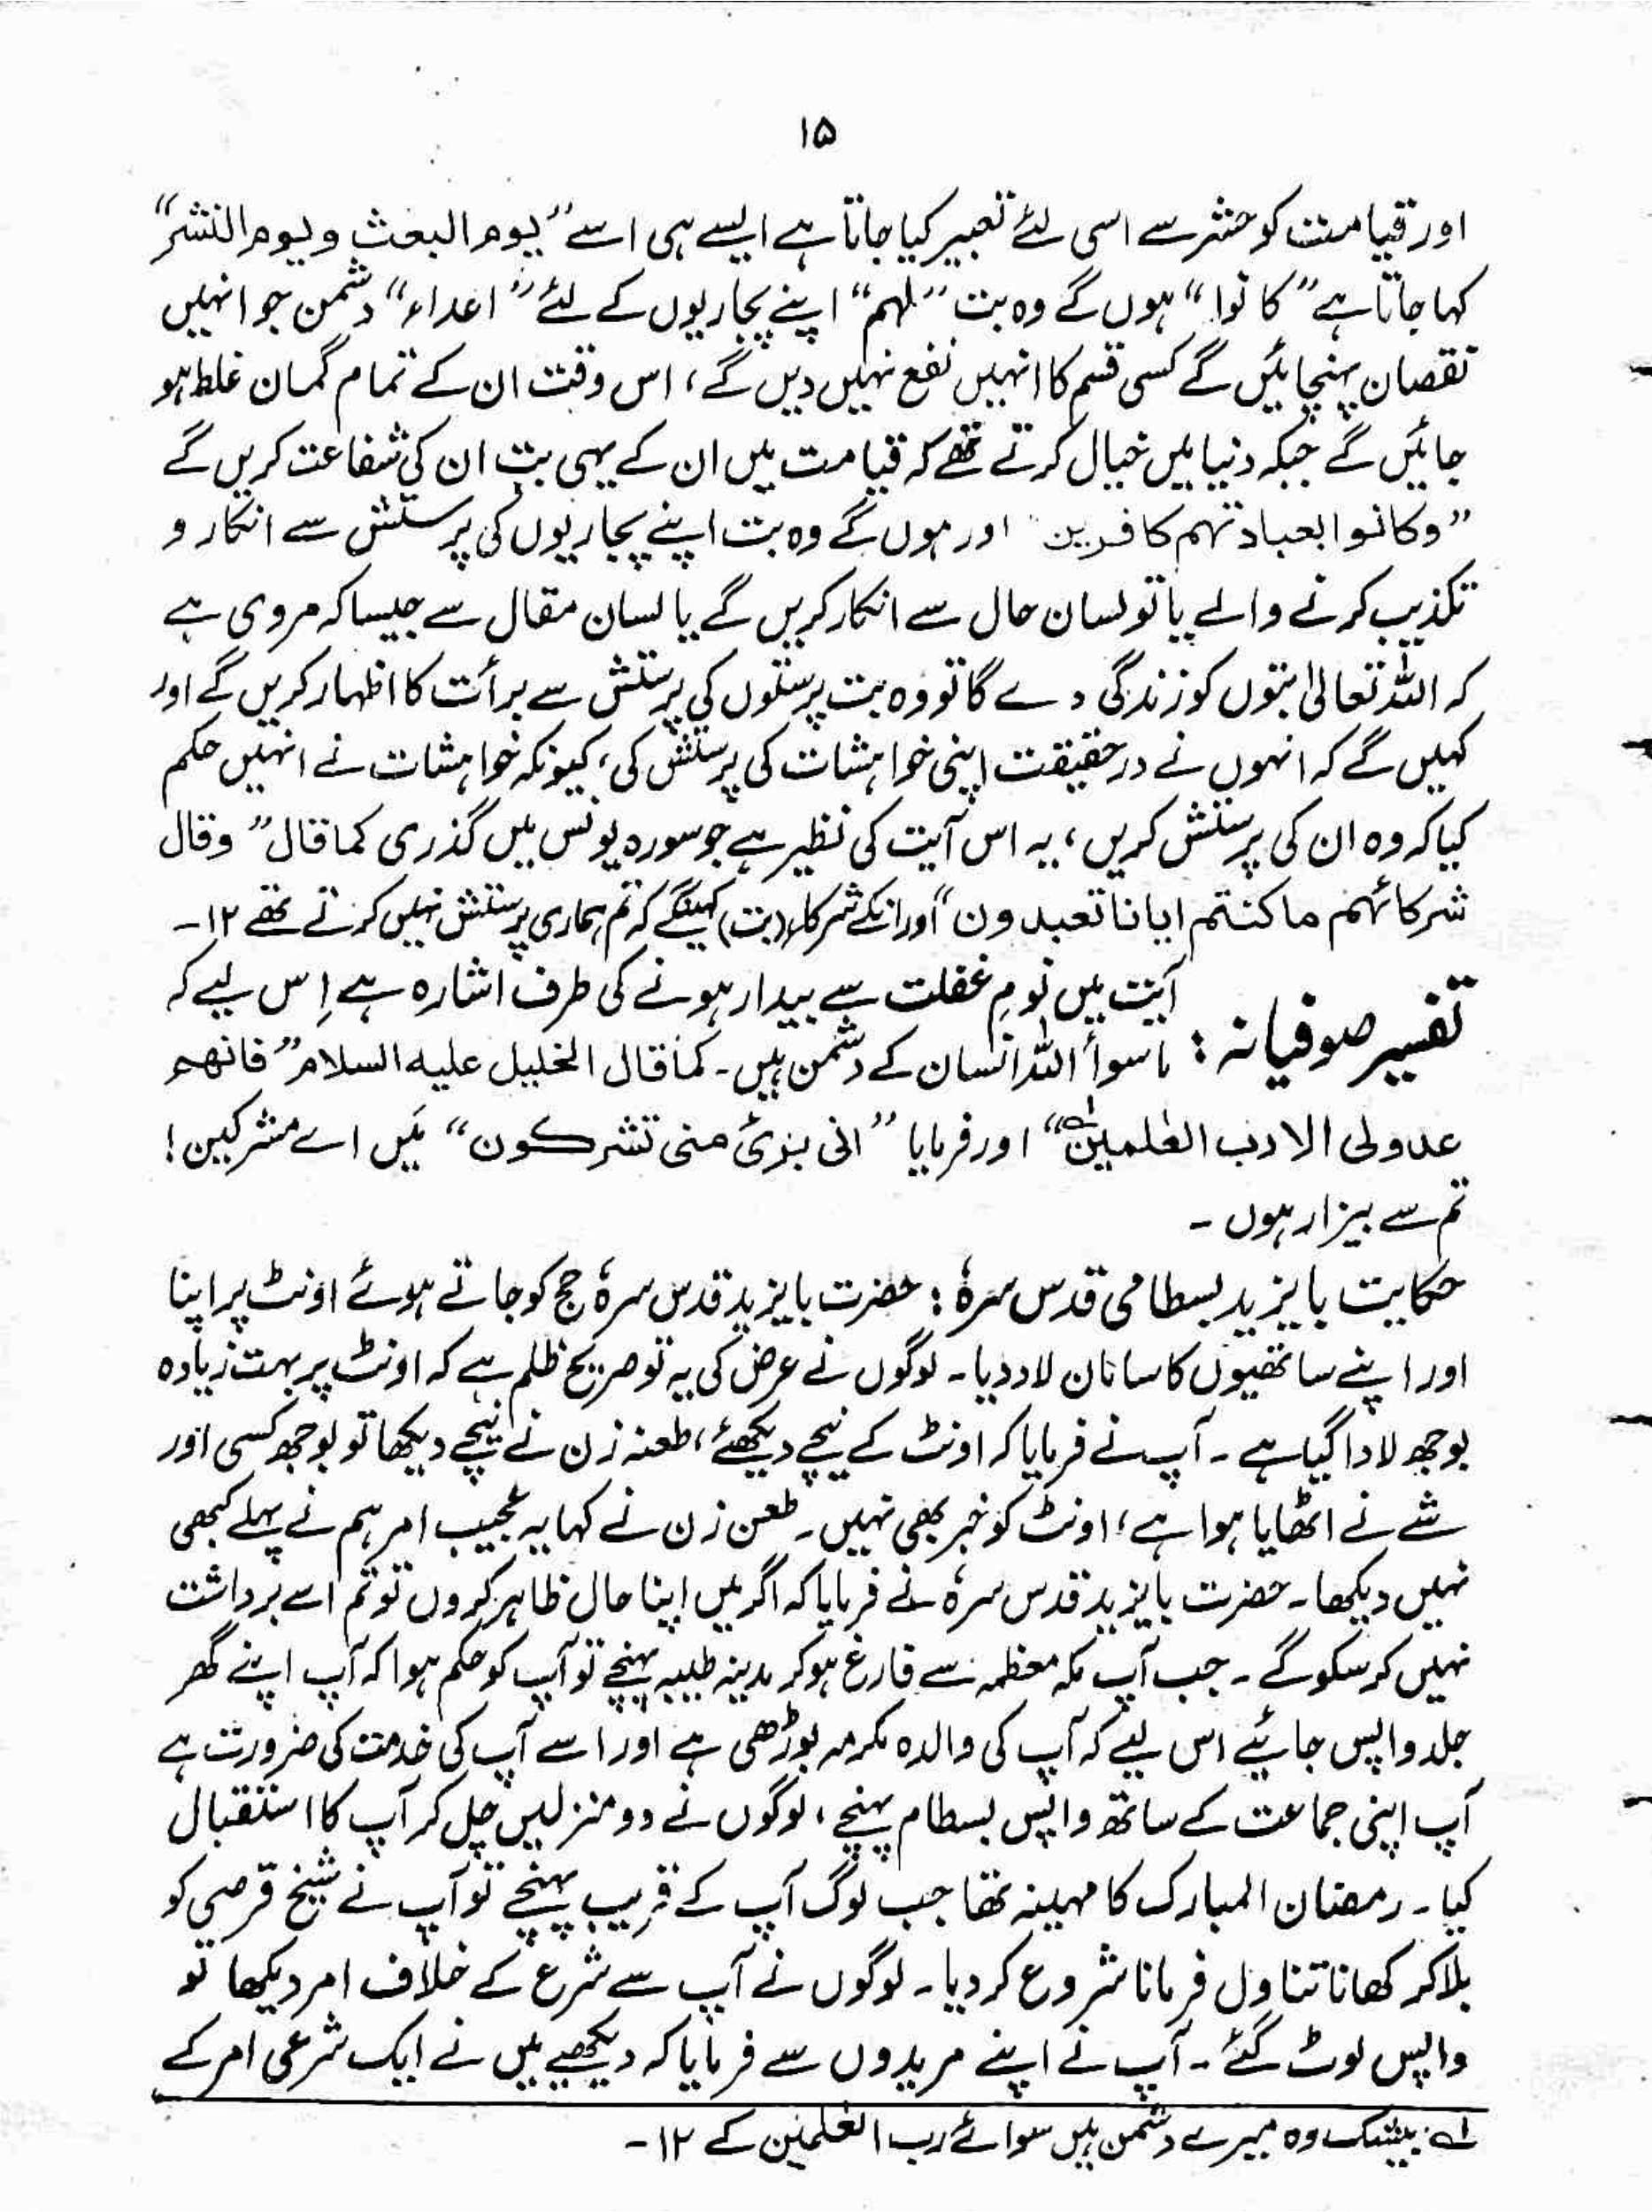 ۱۵
اور قیامت کو حشر سے اسی لئے تعبیر کیا جاتا ہے ایسے ہی اسے ”یوم البعث و یوم النشر“
کہا جاتا ہے ”کانوا“ ہوں گے وہ بت ”لہم“ اپنے پجاریوں کے لئے ”اعداء“ دشمن جو انہیں
نقصان پہنچائیں گے کسی قسم کا انہیں نفع نہیں دیں گے، اس وقت ان کے تمام گمان غلط ہو
جائیں گے جبکہ دنیا میں خیال کرتے تھے کہ قیامت میں ان کے یہی بت ان کی شفاعت کریں گے
”وکانوا بعبادتہم کافرین“ اور ہوں گے وہ بت اپنے پجاریوں کی پرستش سے انکار و
تکذیب کرنے والے یا تو لسان حال سے انکار کریں گے یا لسان مقال سے جیسا کہ مروی ہے
کہ اللہ تعالیٰ بتوں کو زندگی دے گا تو وہ بت پرستوں کی پرستش سے برأت کا اظہار کریں گے اور
کہیں گے کہ انہوں نے درحقیقت اپنی خواہشات کی پرستش کی، کیونکہ خواہشات نے انہیں حکم
کیا کہ وہ ان کی پرستش کریں، یہ اس آیت کی نظیر ہے جو سورہ یونس میں گذری کما قال ”وقال
شرکائہم ما کنتم ایانا تعبدون“ اور انکے شرکاء (بت) کہینگے کہ تم ہماری پرستش نہیں کرتے تھے ۱۲۔
تفسیر صوفیانہ : آیت میں نومِ غفلت سے بیدار ہونے کی طرف اشارہ ہے اِس لیے کہ
ماسوأ اللہ انسان کے دشمن ہیں۔ کما قال الخلیل علیہ السلام ”فانھم
عدولی الا رب العٰلمین لہ“ اور فرمایا ”انی بریٔ منی تشرکون“ میں اے مشرکین!
تم سے بیزار ہوں ۔
حکایت بایزید بسطامی قدس سرہٗ : حضرت بایزید قدس سرہٗ حج کو جاتے ہوئے اونٹ پر اپنا
اور اپنے ساتھیوں کا سامان لاد دیا۔ لوگوں نے عرض کی یہ تو صریح ظلم ہے کہ اونٹ پر بہت زیادہ
بوجھ لادا گیا ہے ۔ آپ نے فرمایا کہ اونٹ کے نیچے دیکھئے، طعنہ زن نے نیچے دیکھا تو بوجھ کسی اور
شے نے اٹھایا ہوا ہے، اونٹ کو خبر بھی نہیں۔ طعن زن نے کہا یہ عجیب امر ہم نے پہلے کبھی
نہیں دیکھا۔ حضرت بایزید قدس سرہٗ نے فرمایا کہ اگر میں اپنا حال ظاہر کروں تو تم اسے برداشت
نہیں کر سکو گے ۔ جب آپ مکہ معظمہ سے فارغ ہو کر مدینہ طیبہ پہنچے تو آپ کو حکم ہوا کہ آپ اپنے گھر
جلد واپس جائیے اس لیے کہ آپ کی والدہ مکرمہ بوڑھی ہے اور اسے آپ کی خدمت کی ضرورت ہے
آپ اپنی جماعت کے ساتھ واپس بسطام پہنچے، لوگوں نے دو منزلیں چل کر آپ کا استقبال
کیا۔ رمضان المبارک کا مہینہ تھا جب لوگ آپ کے قریب پہنچے تو آپ نے شیخ قرصی کو
بلا کر کھانا تناول فرمانا شروع کر دیا۔ لوگوں نے آپ سے شرع کے خلاف امر دیکھا تو
واپس لوٹ گئے ۔ آپ نے اپنے مریدوں سے فرمایا کہ دیکھیے میں نے ایک شرعی امر کے
لہ : بیشک وہ میرے دشمن ہیں سوائے رب العٰلمین کے ۱۲۔